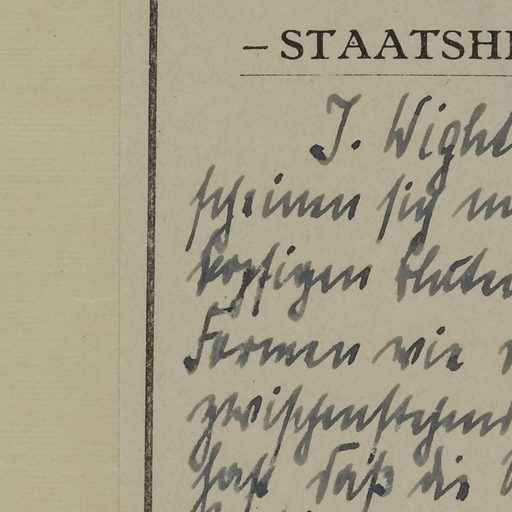 – STAATSHE
J. Wight
scheinen sich
kopfigen Bluten
Formen wie
zwischenstehend
haft daß die